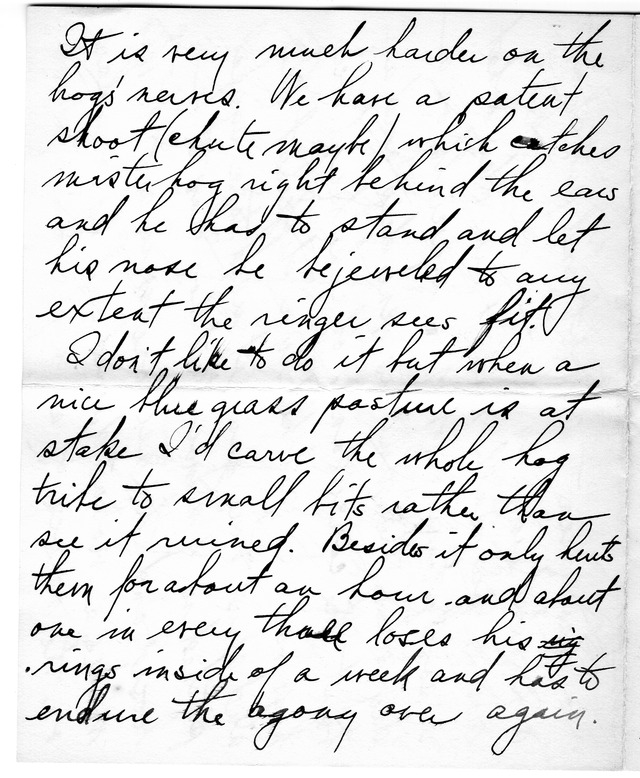 It is very much harder on the
hogs' nerves. We have a patent
shoot (chute maybe) which catches
mister hog right behind the ears
and he has to stand and let
his nose be bejeweled to any
extent the ringer sees fit.
I don't like to do it but when a
nice bluegrass pasture is at
stake I'd carve the whole hog
tribe to small bits rather than
see it ruined. Besides it only hurts
them for about an hour and about
one in every three loses his rig
rings inside of a week and has to
endure the agony over again.